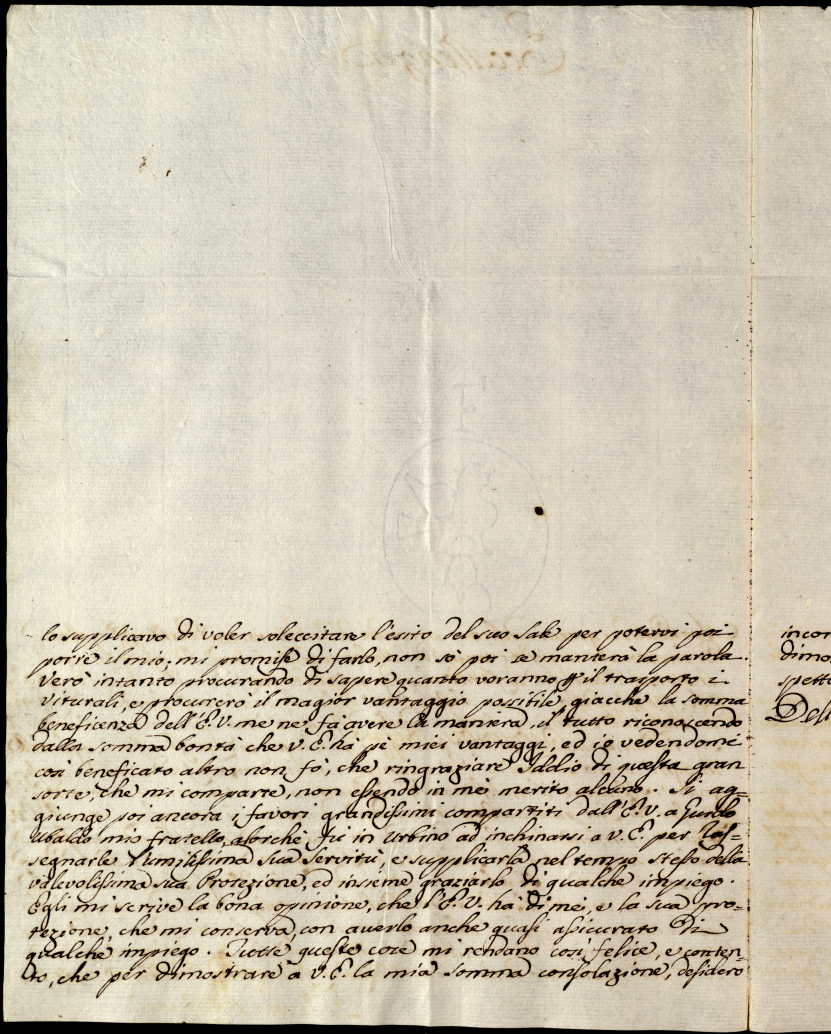 lo supplicavo di voler soleccitare l'esito del suo Sale per potervi poi
porre il mio; mi promise di farlo, non sò poi se manterà la parola.
Verò intanto procurando di sapere quanto voranno il trasporto i
Viturali, e procurerò il magior vantaggio possibile, giacche la somma
beneficenza dell'E.V. me ne fà avere la maniera, il tutto riconoscendo
dalla somma bontà che V.E. hà pè miei vantaggi, ed io vedendomi
così beneficato altro non fò, che ringraziare Iddio di questa gran
sorte, che mi comparte, non essendo in mè merito alcuno. Si ag=
giunge poi ancora i favori grandissimi compartiti dall'E.V. a Guido
Ubaldo mio fratello, alorchè fù in Urbino ad inchinarsi a V.E. per Ras=
segnarle l'umilissima sua Servitù, e supplicarla nel tempo stesso della
valevolissima sua Protezione, ed insieme graziarlo di qualche impiego.
Egli mi scrive la bona opinione, che l'E.V. hà di mè, e la sua pro=
tezione, che mi conserva, con averlo anche quasi assicurato di
qualche inpiego. Tutte queste cose mi rendano così felice, e conten=
to, che per dimostrare a V.E. la mia somma consolazione, desidero
incon
dimo
spett
Dell